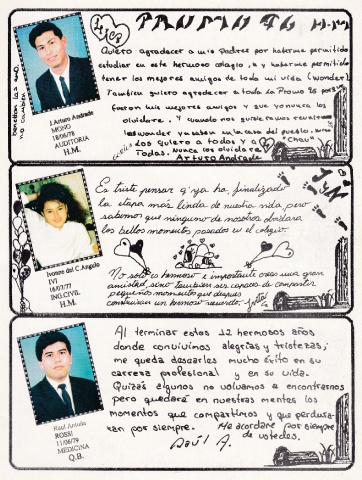 PROMO 96 H-M
Quiero agradecer a mis padres por haberme permitido
estudiar en este hermoso colegio, y haberme permitido
tener los mejores amigos de toda mi vida (Wonder).
Tambien quiero agradecer a toda la Promo 96 porque
fueron mis mejores amigos y que yo nunca los
olvidare. Y cuando nos
los wonder ya saben la casa del pueblo.
Los quiero a todos y a
Todas. Nunca los olvidare
Chau
Arturo Andrade
J. Arturo Andrade
MONO
18/06/78
AUDITORIA
H.M.
Es triste pensar q' ya ha finalizado
la etapa más linda de nuestra vida pero
sabemos que ninguno de nosotros olvidara
los bellos momentos pasados en el colegio.
No solo es hermoso e importante crear una gran
amistad, sino tambien ser capaz de compartir
pequeños momentos que despues
construiran un hermoso recuerdo.
Ivonne del C. Angulo
IVI
16/07/77
ING.CIVIL
H.M.
Al terminar estos 12 hermosos años
donde convivimos alegrias y tristezas;
me queda desearles mucho éxito en su
carrera profesional y en su vida.
Quizás algunos no volvamos a encontrarnos
pero quedaré en nuestras mentes los
momentos que compartimos y que perdura-
ran por siempre. Me acordare por siempre
de ustedes.
Raúl A.
Raúl Antulo
ROSSI
11/06/79
MEDICINA
Q.B.